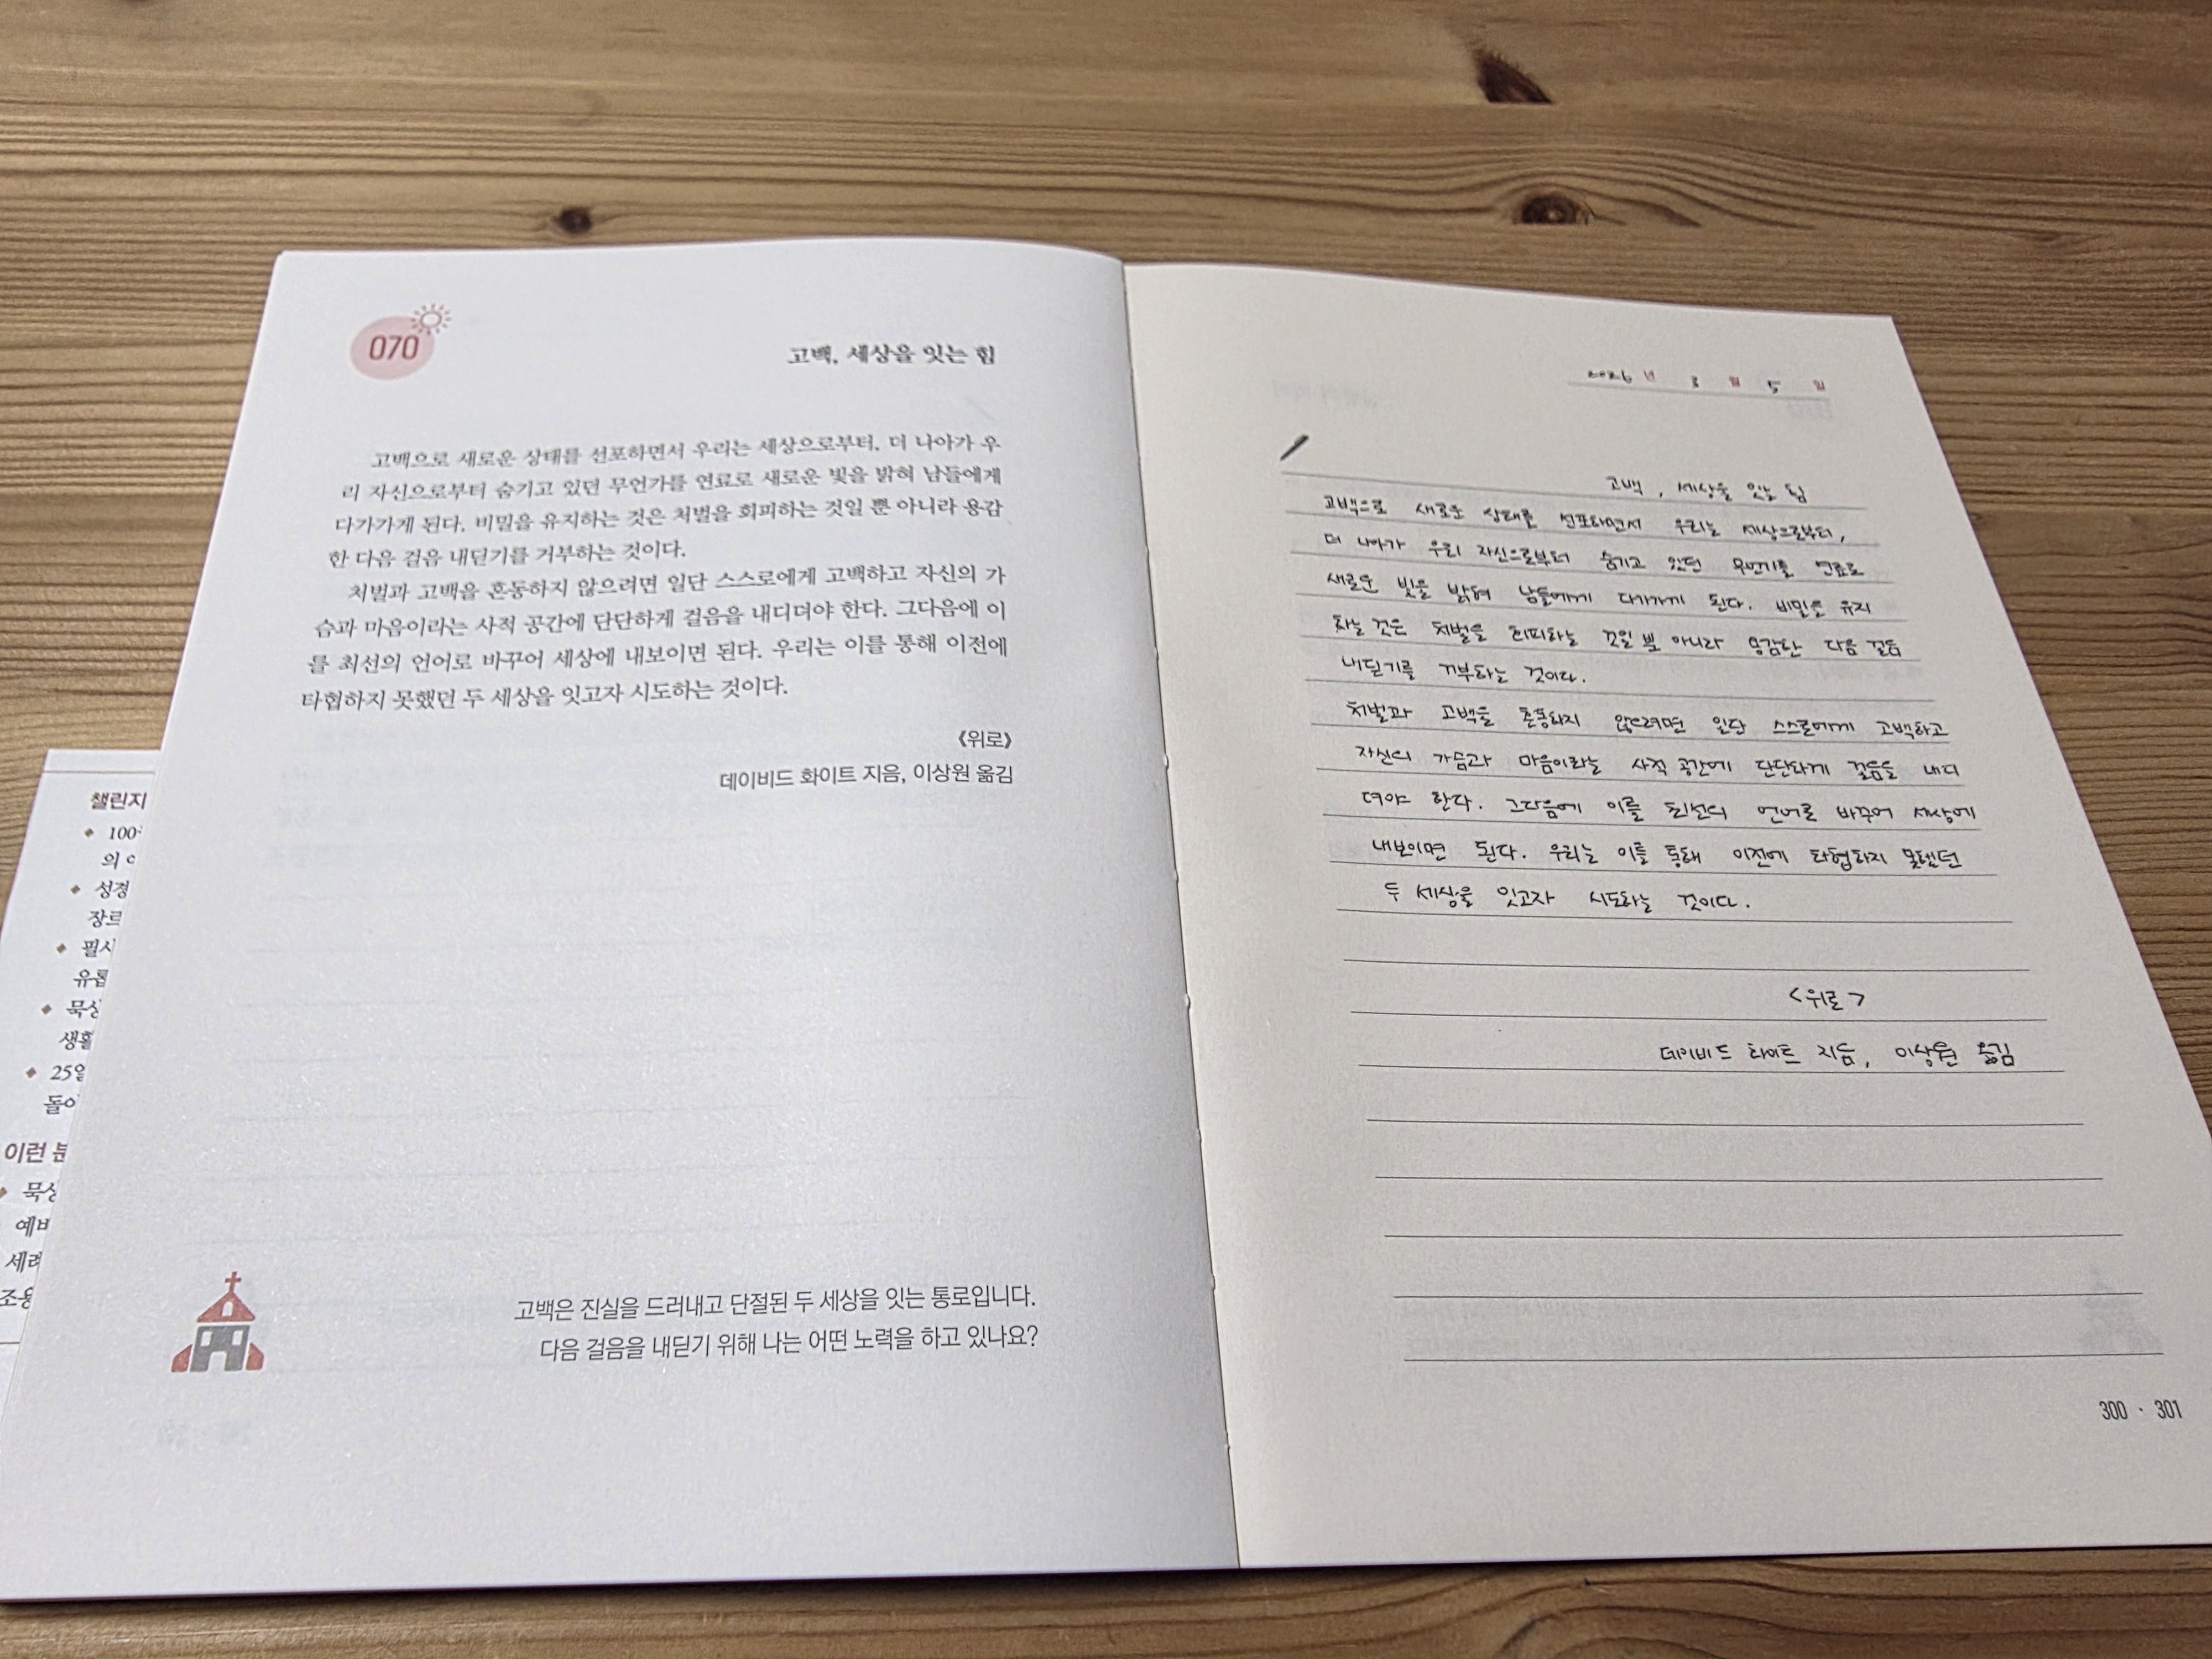 070
고백, 세상을 잇는 힘
고백으로 새로운 상태를 선포하면서 우리는 세상으로부터, 더 나아가 우
리 자신으로부터 숨기고 있던 무언가를 연료로 새로운 빛을 밝혀 남들에게
다가가게 된다. 비밀을 유지하는 것은 처벌을 회피하는 것일 뿐 아니라 용감
한 다음 걸음 내딛기를 거부하는 것이다.
처벌과 고백을 혼동하지 않으려면 일단 스스로에게 고백하고 자신의 가
슴과 마음이라는 사적 공간에 단단하게 걸음을 내디뎌야 한다. 그다음에 이
를 최선의 언어로 바꾸어 세상에 내보이면 된다. 우리는 이를 통해 이전에
타협하지 못했던 두 세상을 잇고자 시도하는 것이다.
《위로》
데이비드 화이트 지음, 이상원 옮김
고백은 진실을 드러내고 단절된 두 세상을 잇는 통로입니다.
다음 걸음을 내딛기 위해 나는 어떤 노력을 하고 있나요?
챌린지
100
의
성경
장르
필사
묵상
생활
25일
이런 분
묵상
세례
2026 년 3 월 5 일
고백, 세상을 잇는 힘
고백으로 새로운 상태를 선포하면서 우리는 세상으로부터,
더 나아가 우리 자신으로부터 숨기고 있던 무언가를 연료로
새로운 빛을 밝혀 남들에게 다가가게 된다. 비밀을 유지
하는 것은 처벌을 회피하는 것일 뿐 아니라 용감한 다음 걸음
내딛기를 거부하는 것이다.
처벌과 고백을 혼동하지 않으려면 일단 스스로에게 고백하고
자신의 가슴과 마음이라는 사적 공간에 단단하게 걸음을 내디
뎌야 한다. 그다음에 이를 최선의 언어로 바꾸어 세상에
내보이면 된다. 우리는 이를 통해 이전에 타협하지 못했던
두 세상을 잇고자 시도하는 것이다.
<위로>
데이비드 화이트 지음, 이상원 옮김
300 · 301